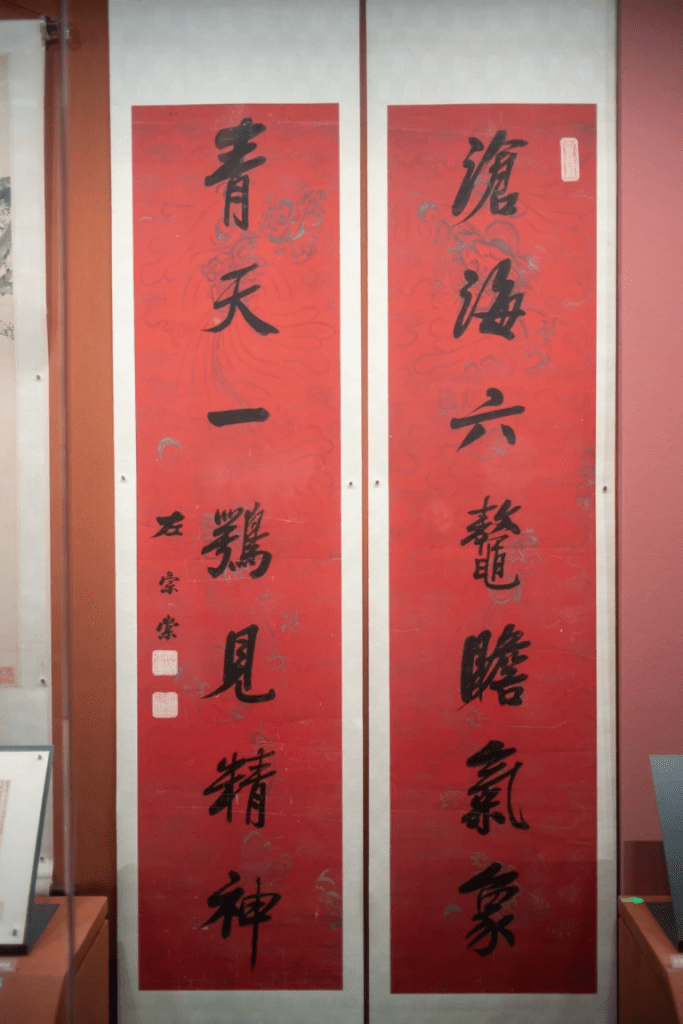 滄海六鰲瞻氣象
青天一鶚見精神
左宗棠